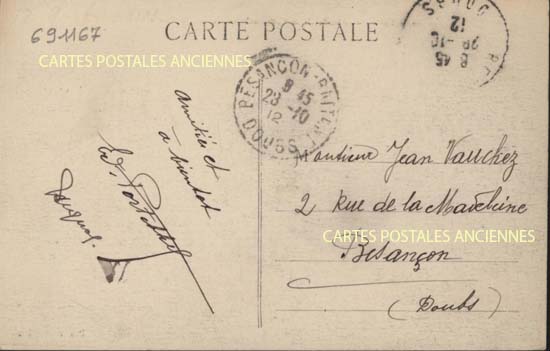 CARTE POSTALE
691167
CARTES POSTALES ANCIENNES
BESANÇON
8 45
28-10
12
DOUBS
8 45
28-10
12
DOUBS
amitiés et
à bientôt
Monsieur Jean Vauchez
2 Rue de la Madeleine
CARTES POSTALES ANCIENNES
Besançon
(Doubs)